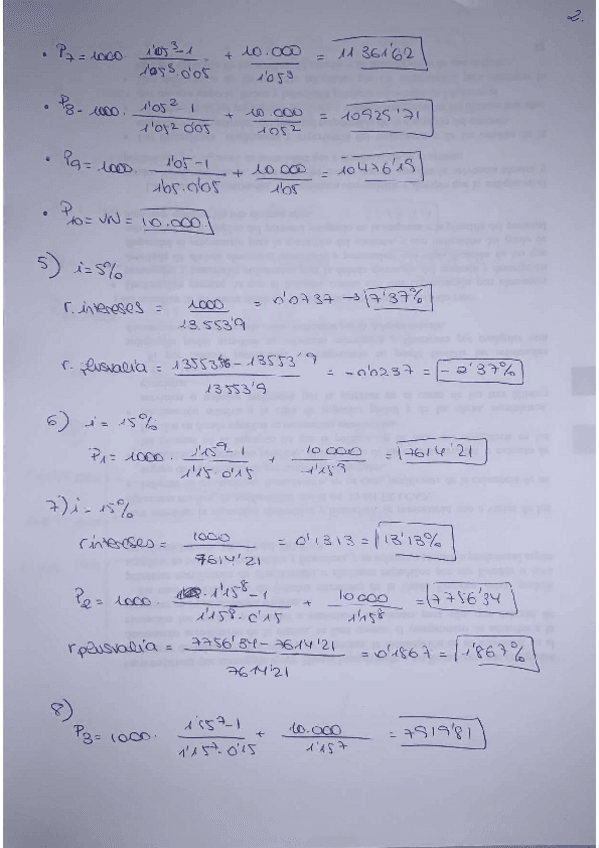 2.
• P7 = 1000 · 1'05³-1 / 1'05³·0'05 + 10.000 / 1'05³ = 11361'62
• P8 - 1000 · 1'05² 1 / 1'05² 0'05 + 10.000 / 105² = 10929'71
• P9 = 1000 · 1'05-1 / 1'05·0'05 + 10.000 / 1'05 = 10476'19
• P10 = VN = 10.000
5) i = 5%
r. intereses = 1000 / 13.553'9 = 0'0737 → 7'37%
r. plusvalía = - 13553'9 / 13553'9 = -0'0237 = -2'37%
6) i = 15%
P1 = 1000 · 1'15⁹-1 / 1'15·0'15 + 10000 / 1'15⁹ = 7614'21
7) i - 15%
r intereses = 1000 / 7614'21 = 0'1313 = 13'13%
P2 = 1000 · 1'15⁸-1 / 1'15⁸·0'15 + 10000 / 1'15⁸ = 7756'34
r plusvalía = 7756'34 - 7614'21 / 7614'21 = 0'1867 = 1'867%
8)
P3 = 1000 · 1'15⁷-1 / 1'15⁷·0'15 + 10.000 / 1'15⁷ = 7919'81